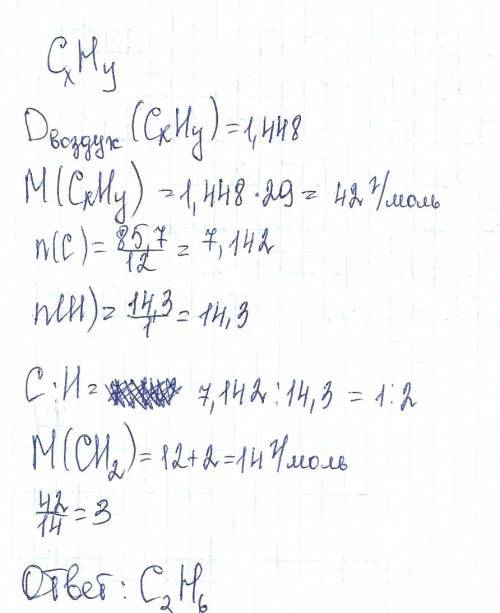 CxHy
Dвоздух (CxHy) = 1,448
M(CxHy) = 1,448 · 29 = 42 г/моль
n(C) = 85,7/12 = 7,142
n(H) = 14,3/1 = 14,3
C : H = 7,142 : 14,3 = 1 : 2
M(CH₂) = 12 + 2 = 14 г/моль
42/14 = 3
Ответ: C₂H₆